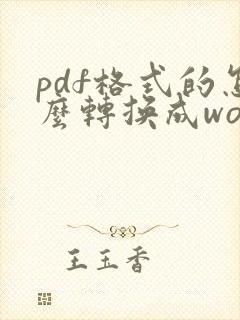 pdf格式的怎
麼轉換成wo
王玉香